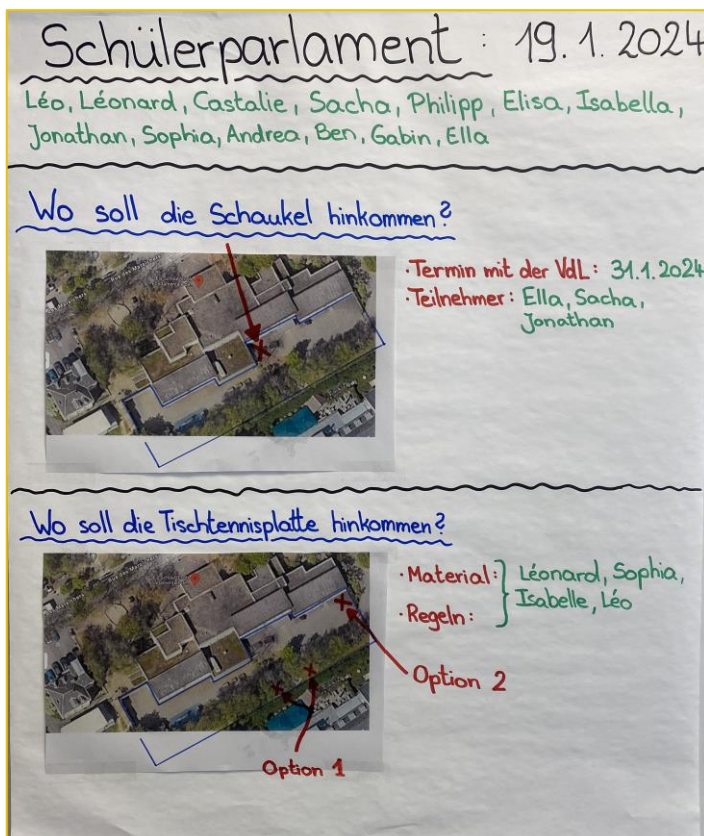 Schülerparlament : 19.1.2024
Léo, Léonard, Castalie, Sacha, Philipp, Elisa, Isabella,
Jonathan, Sophia, Andrea, Ben, Gabin, Ella
Wo soll die Schaukel hinkommen?
· Termin mit der VdL: 31.1.2024
· Teilnehmer: Ella, Sacha,
Jonathan
Wo soll die Tischtennisplatte hinkommen?
· Material: Léonard, Sophia,
Isabelle, Léo
· Regeln:
Option 2
Option 1